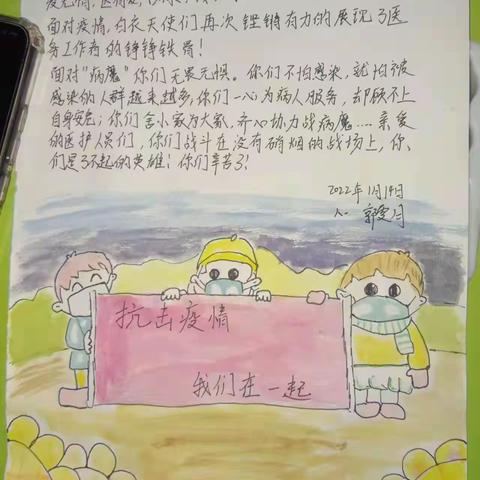 面对疫情,白衣天使们再次铿锵有力的展现了医
务工作者的铮铮铁骨!
面对"病魔"你们无畏无惧。你们不怕感染,就怕被
感染的人群越来越多;你们一心为病人服务,却顾不上
自身安危;你们舍小家为大家,齐心协力战病魔....亲爱
的医护人员们,你们战斗在没有硝烟的战场上,你
们是了不起的英雄!你们辛苦了!
2022年1月14日
抗击疫情
我们在一起